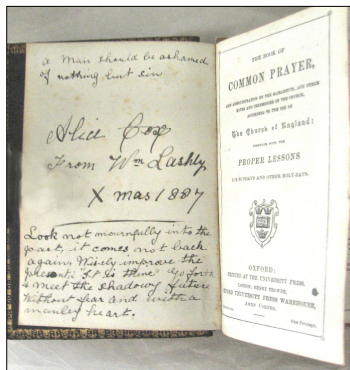 a man should be ashamed
of nothing but sin
Alice Cox
From Wm Lashly
X mas 1887
Look not mournfully into the
past, it comes not back
again, Wisely improve the
present: It is thine Go forth
to meet the shadowy future
Without fear and with a
manley heart.
THE BOOK OF
COMMON PRAYER,
AND ADMINISTRATION OF THE SACRAMENTS, AND OTHER
RITES AND CEREMONIES OF THE CHURCH,
ACCORDING TO THE USE OF
The Church of England:
TOGETHER WITH THE
PROPER LESSONS
FOR SUNDAYS AND OTHER HOLY-DAYS.
OXFORD:
PRINTED AT THE UNIVERSITY PRESS.
LONDON: HENRY FROWDE,
OXFORD UNIVERSITY PRESS WAREHOUSE,
AMEN CORNER.
Cum Privilegio.